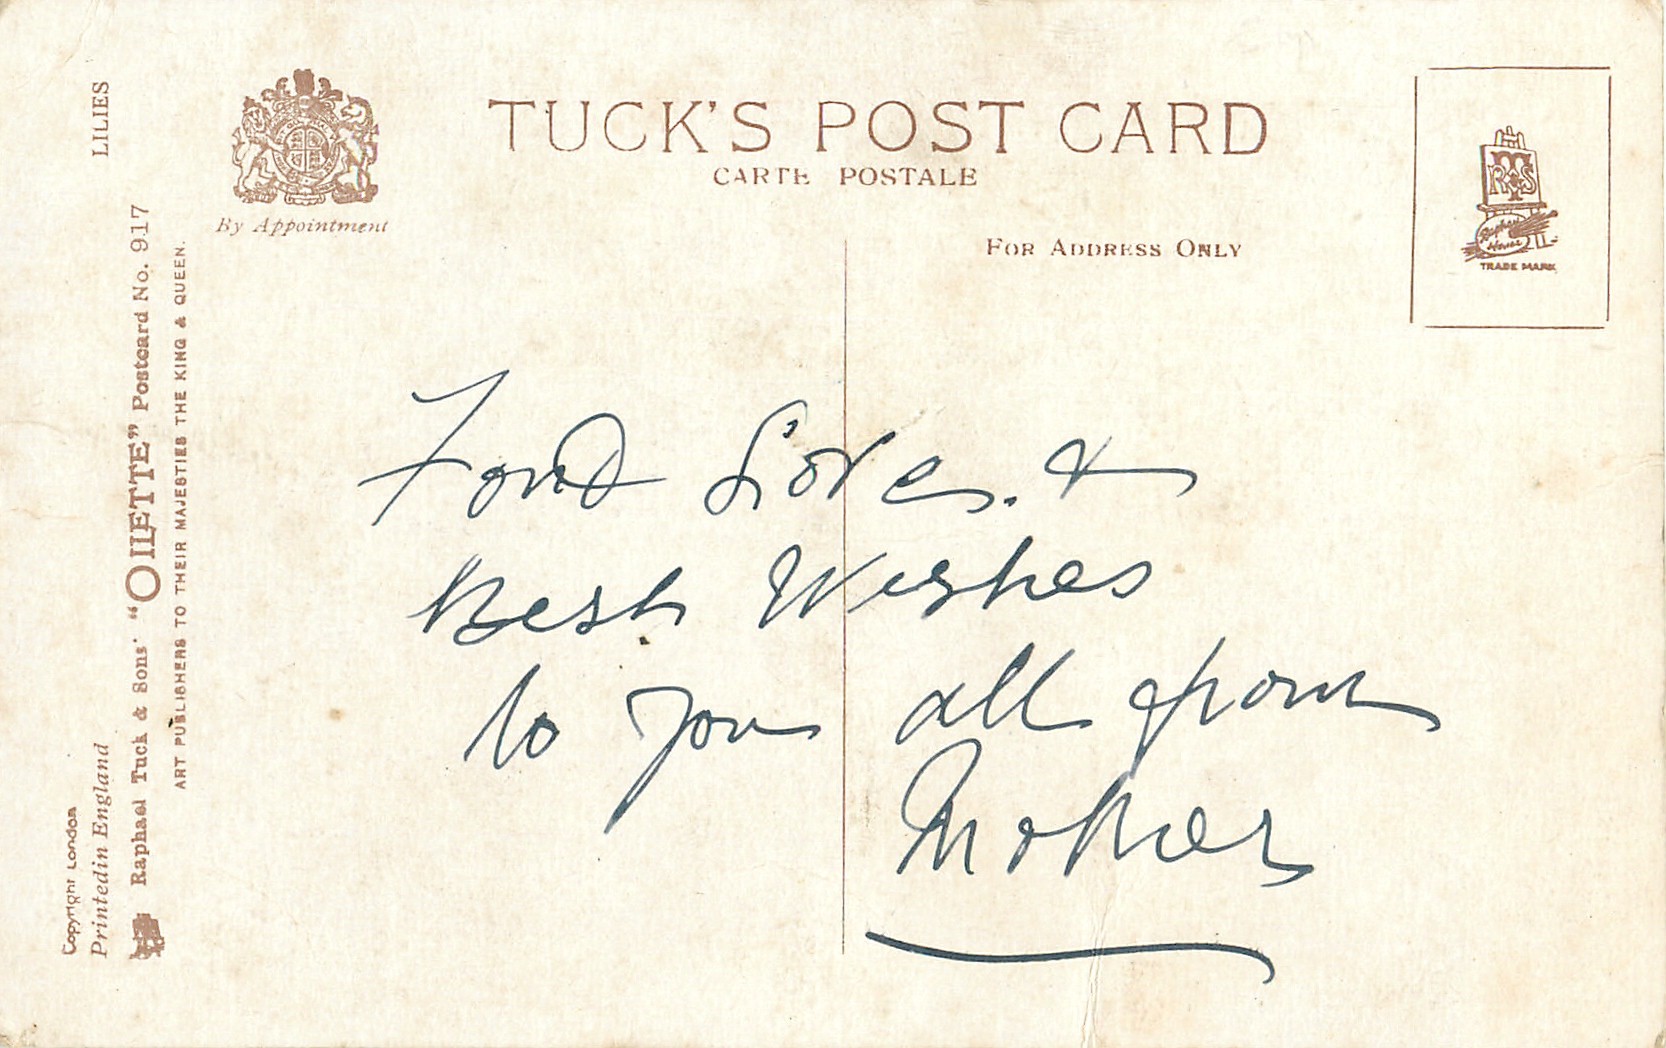 LILIES
By Appointment
TUCK'S POST CARD
CARTE POSTALE
FOR ADDRESS ONLY
RTS
Raphael House
TRADE MARK
Copyright London
Printed in England
Raphael Tuck & Sons' "OILETTE" Postcard No. 917
ART PUBLISHERS TO THEIR MAJESTIES THE KING & QUEEN.
Fond Love. &
Best Wishes
to you all from
Mother